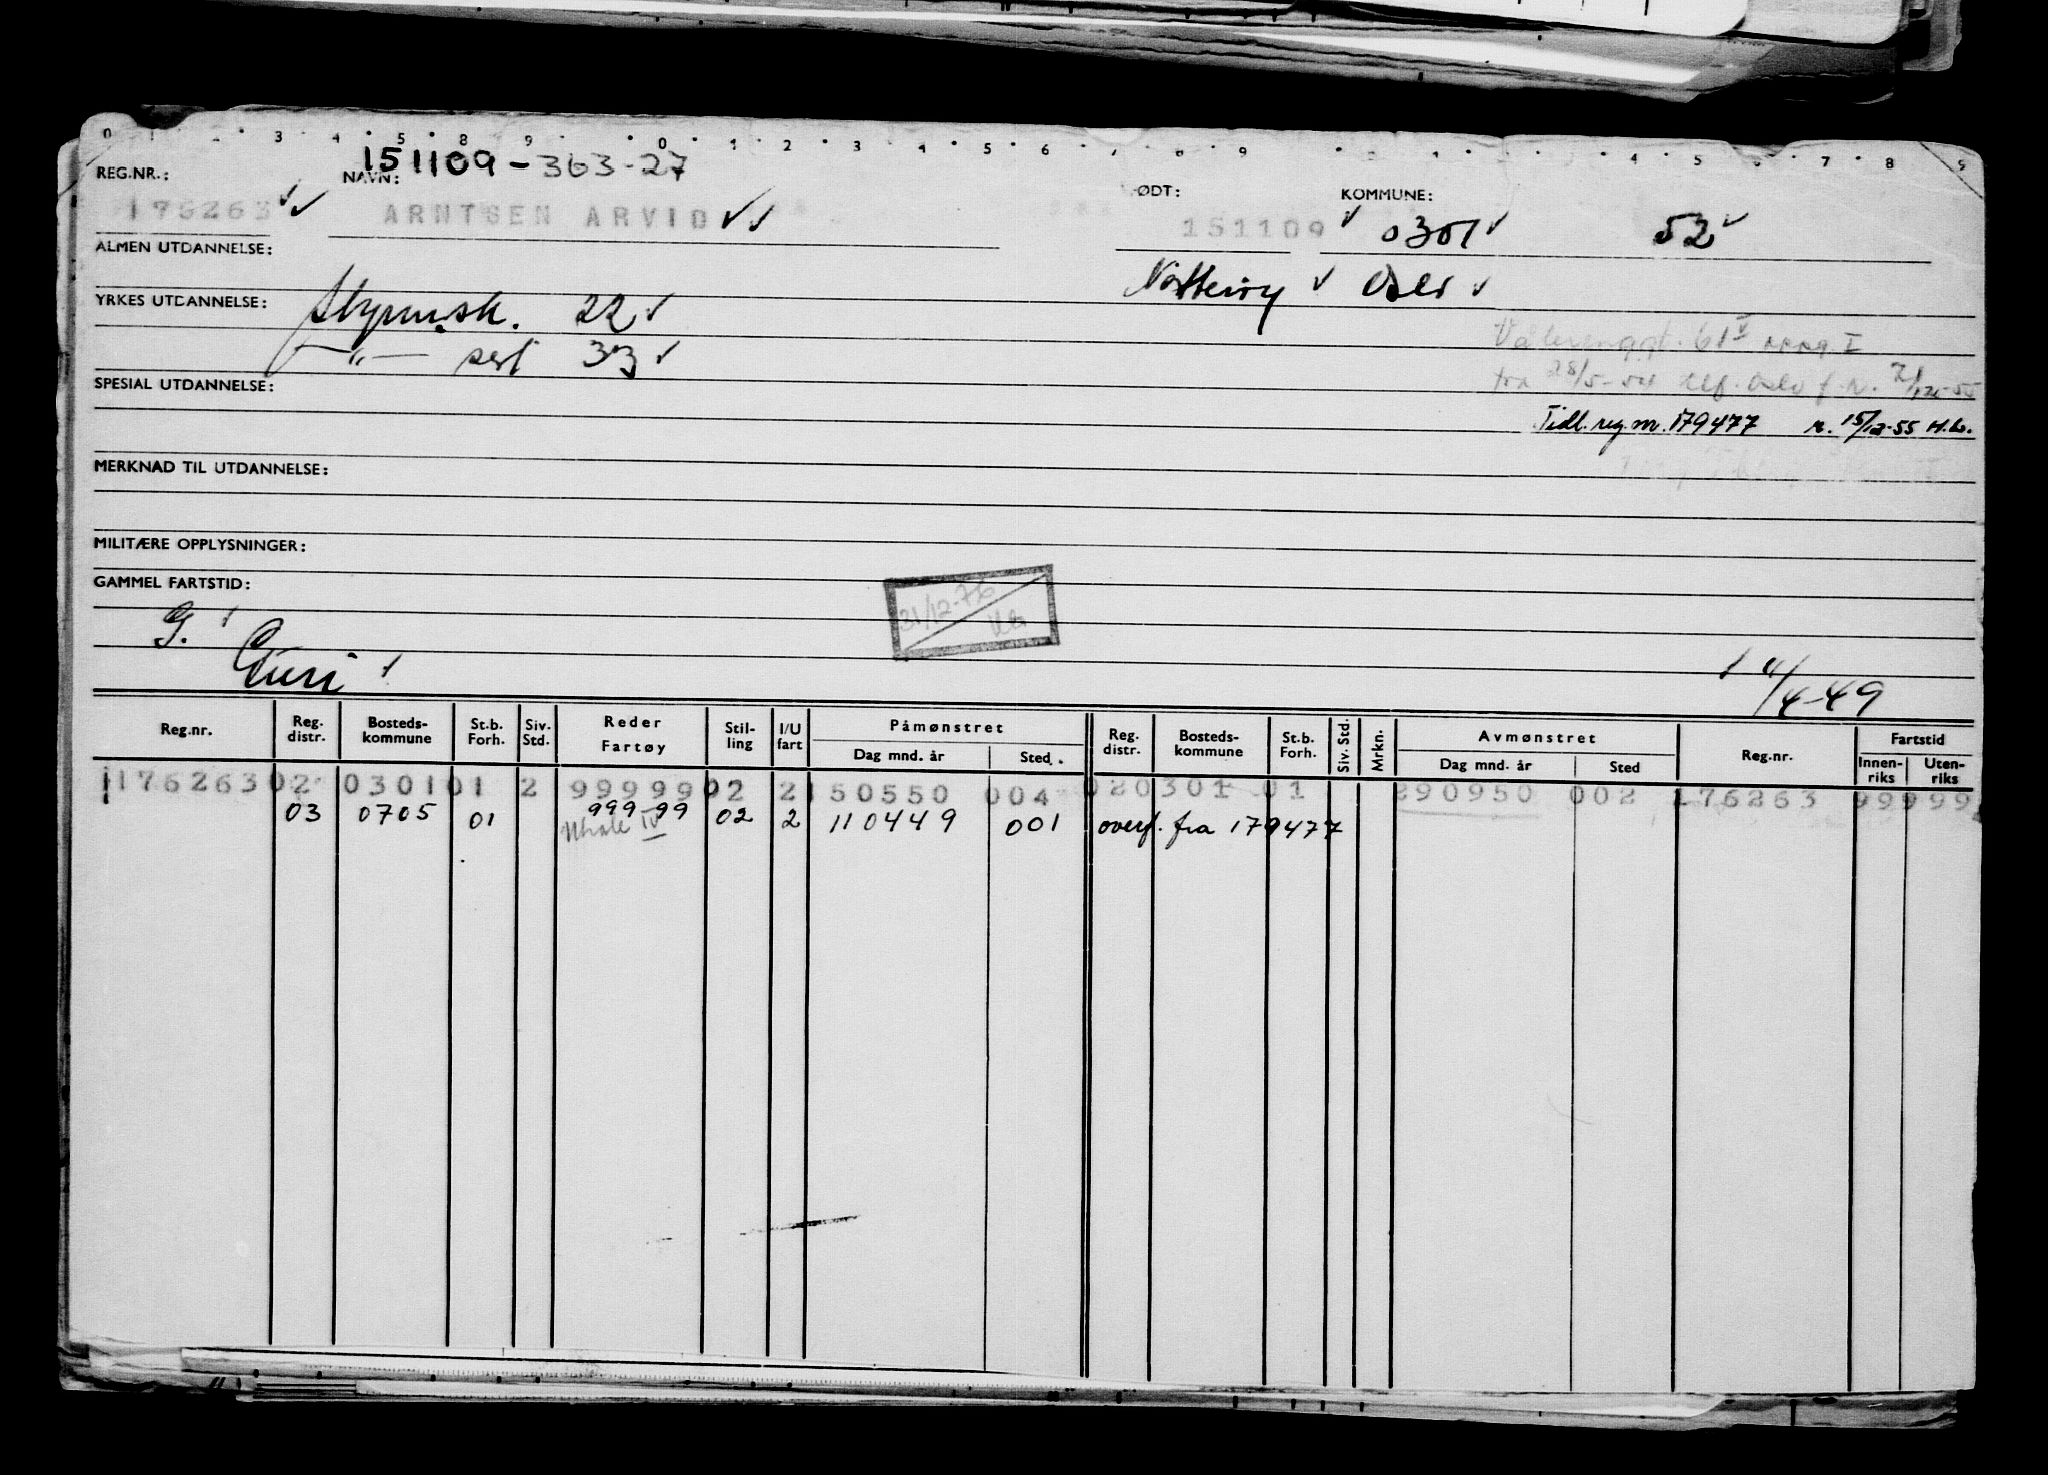 151109-363-27
REG.NR.: NAVN: ØDT: KOMMUNE:
176263 ✓✓ ARNTSEN ARVID ✓✓ 151109 ✓ 0301 ✓ 52 ✓
ALMEN UTDANNELSE:
Nøtterøy ✓ Oslo ✓
YRKES UTDANNELSE: Styrm.sk. 22 ✓
—"— sert 33 ✓
Vålerenggt. 61 V oppg I
fra 28/5-54 tlf. Oslo f.r.
SPESIAL UTDANNELSE:
Tidl. reg.nr. 179477 r. 15/12-55 H.b.
MERKNAD TIL UTDANNELSE:
MILITÆRE OPPLYSNINGER:
GAMMEL FARTSTID:
31/12-76
G. ✓
Guri ✓ 4/4-49
Reg.nr. Reg. distr. Bosteds-kommune St.b. Forh. Siv. Std. Reder Fartøy Stil-ling I/U fart Påmønstret Dag mnd. år Sted. Reg. distr. Bosteds-kommune St.b. Forh. Siv. Std. Mrkn. Avmønstret Dag mnd. år Sted Reg.nr. Fartstid Innen-riks Uten-riks
176263 02 0301 01 2 99999 02 2 150550 004 02 0301 01 290950 002 176263 999999
03 0705 01 99999 02 2 110449 001 overf. fra 179477
Whale IV